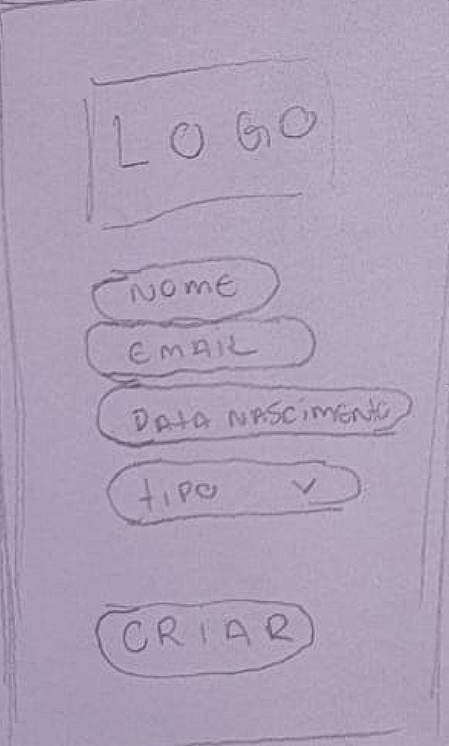 LOGO
NOME
EMAIL
DATA NASCIMENTO
tIPO
CRIAR